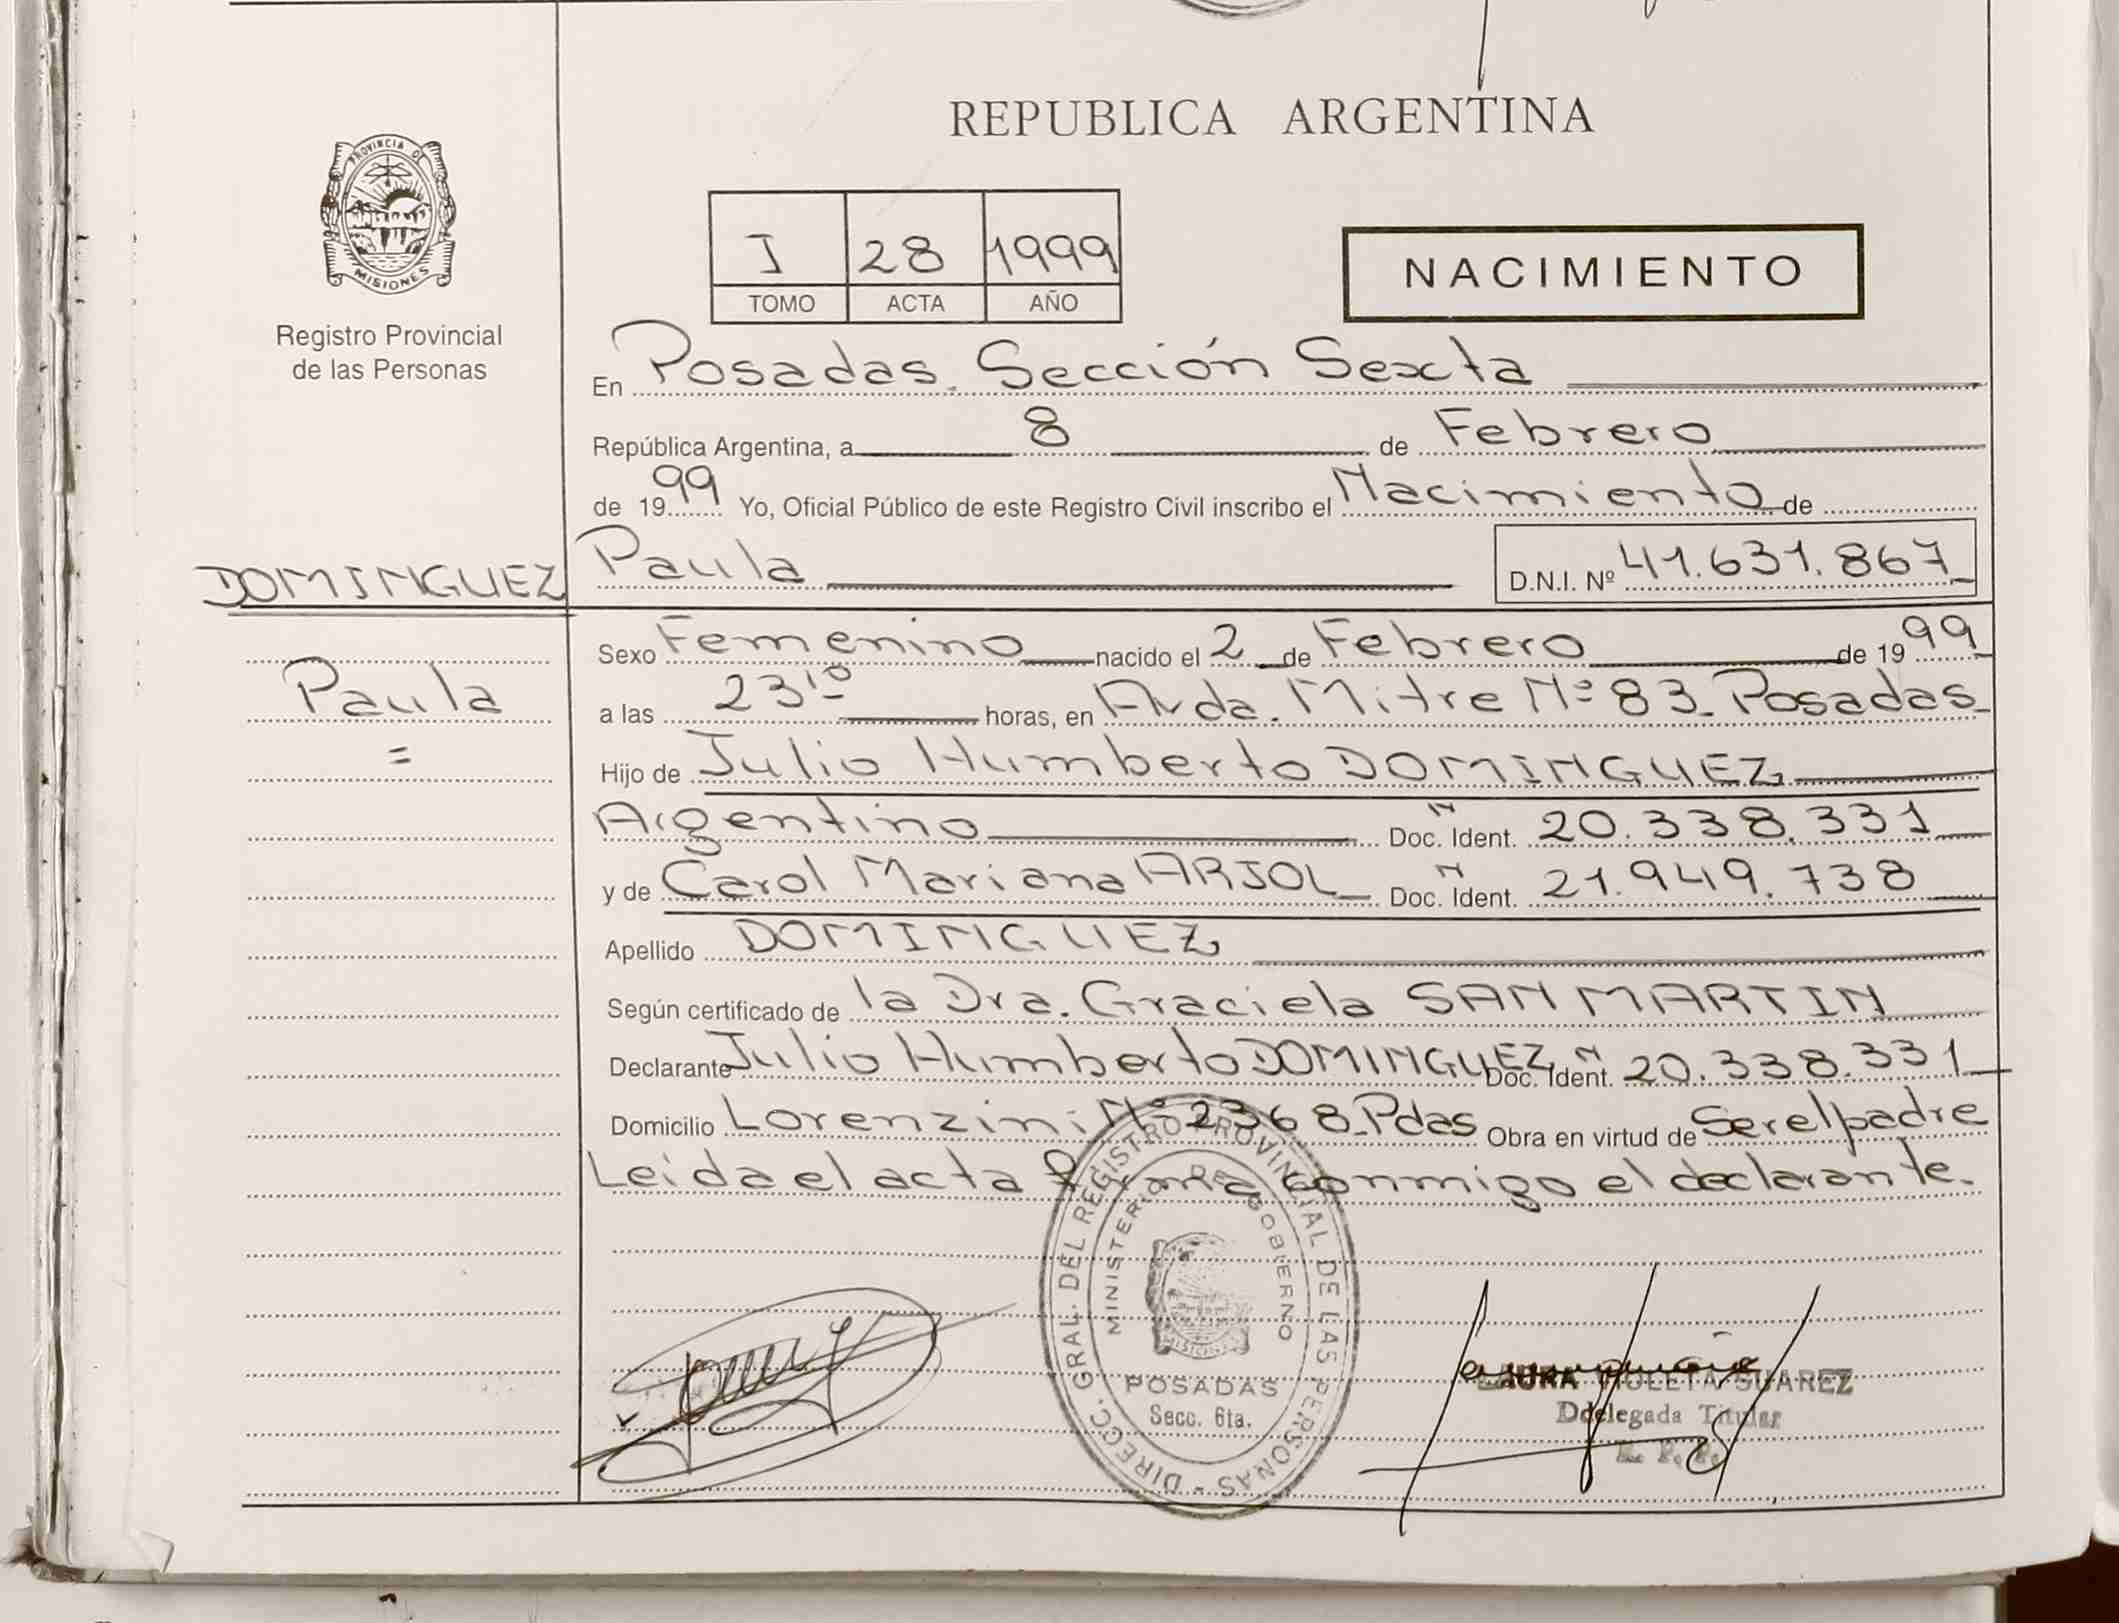 REPUBLICA ARGENTINA
PROVINCIA DE
MISIONES
Registro Provincial
de las Personas
I 28 1999
TOMO ACTA AÑO
NACIMIENTO
En Posadas. Sección Sexta
República Argentina, a 8 de Febrero
de 1999 Yo, Oficial Público de este Registro Civil inscribo el Nacimiento de
Paula D.N.I. Nº 41.631.867
DOMINGUEZ
Paula
=
Sexo Femenino nacido el 2 de Febrero de 1999
a las 23¹⁰ horas, en Avda. Mitre Nº 83 Posadas
Hijo de Julio Humberto DOMINGUEZ
Argentino Doc. N Ident. 20.338.331
y de Carol Mariana ARJOL Doc. N Ident. 21.949.738
Apellido DOMINGUEZ
Según certificado de la Dra. Graciela SAN MARTIN
Declarante Julio Humberto DOMINGUEZ Doc. N Ident. 20.338.331
Domicilio Lorenzini Nº 2368 Pdas Obra en virtud de Ser el padre
Leida el acta firma conmigo el declarante.
DIRECC. GRAL. DEL REGISTRO PROVINCIAL DE LAS PERSONAS -
MINISTERIO DE GOBIERNO
MISIONES
POSADAS
Secc. 6ta.
LAURA VIOLETA SUAREZ
Ddelegada Titular